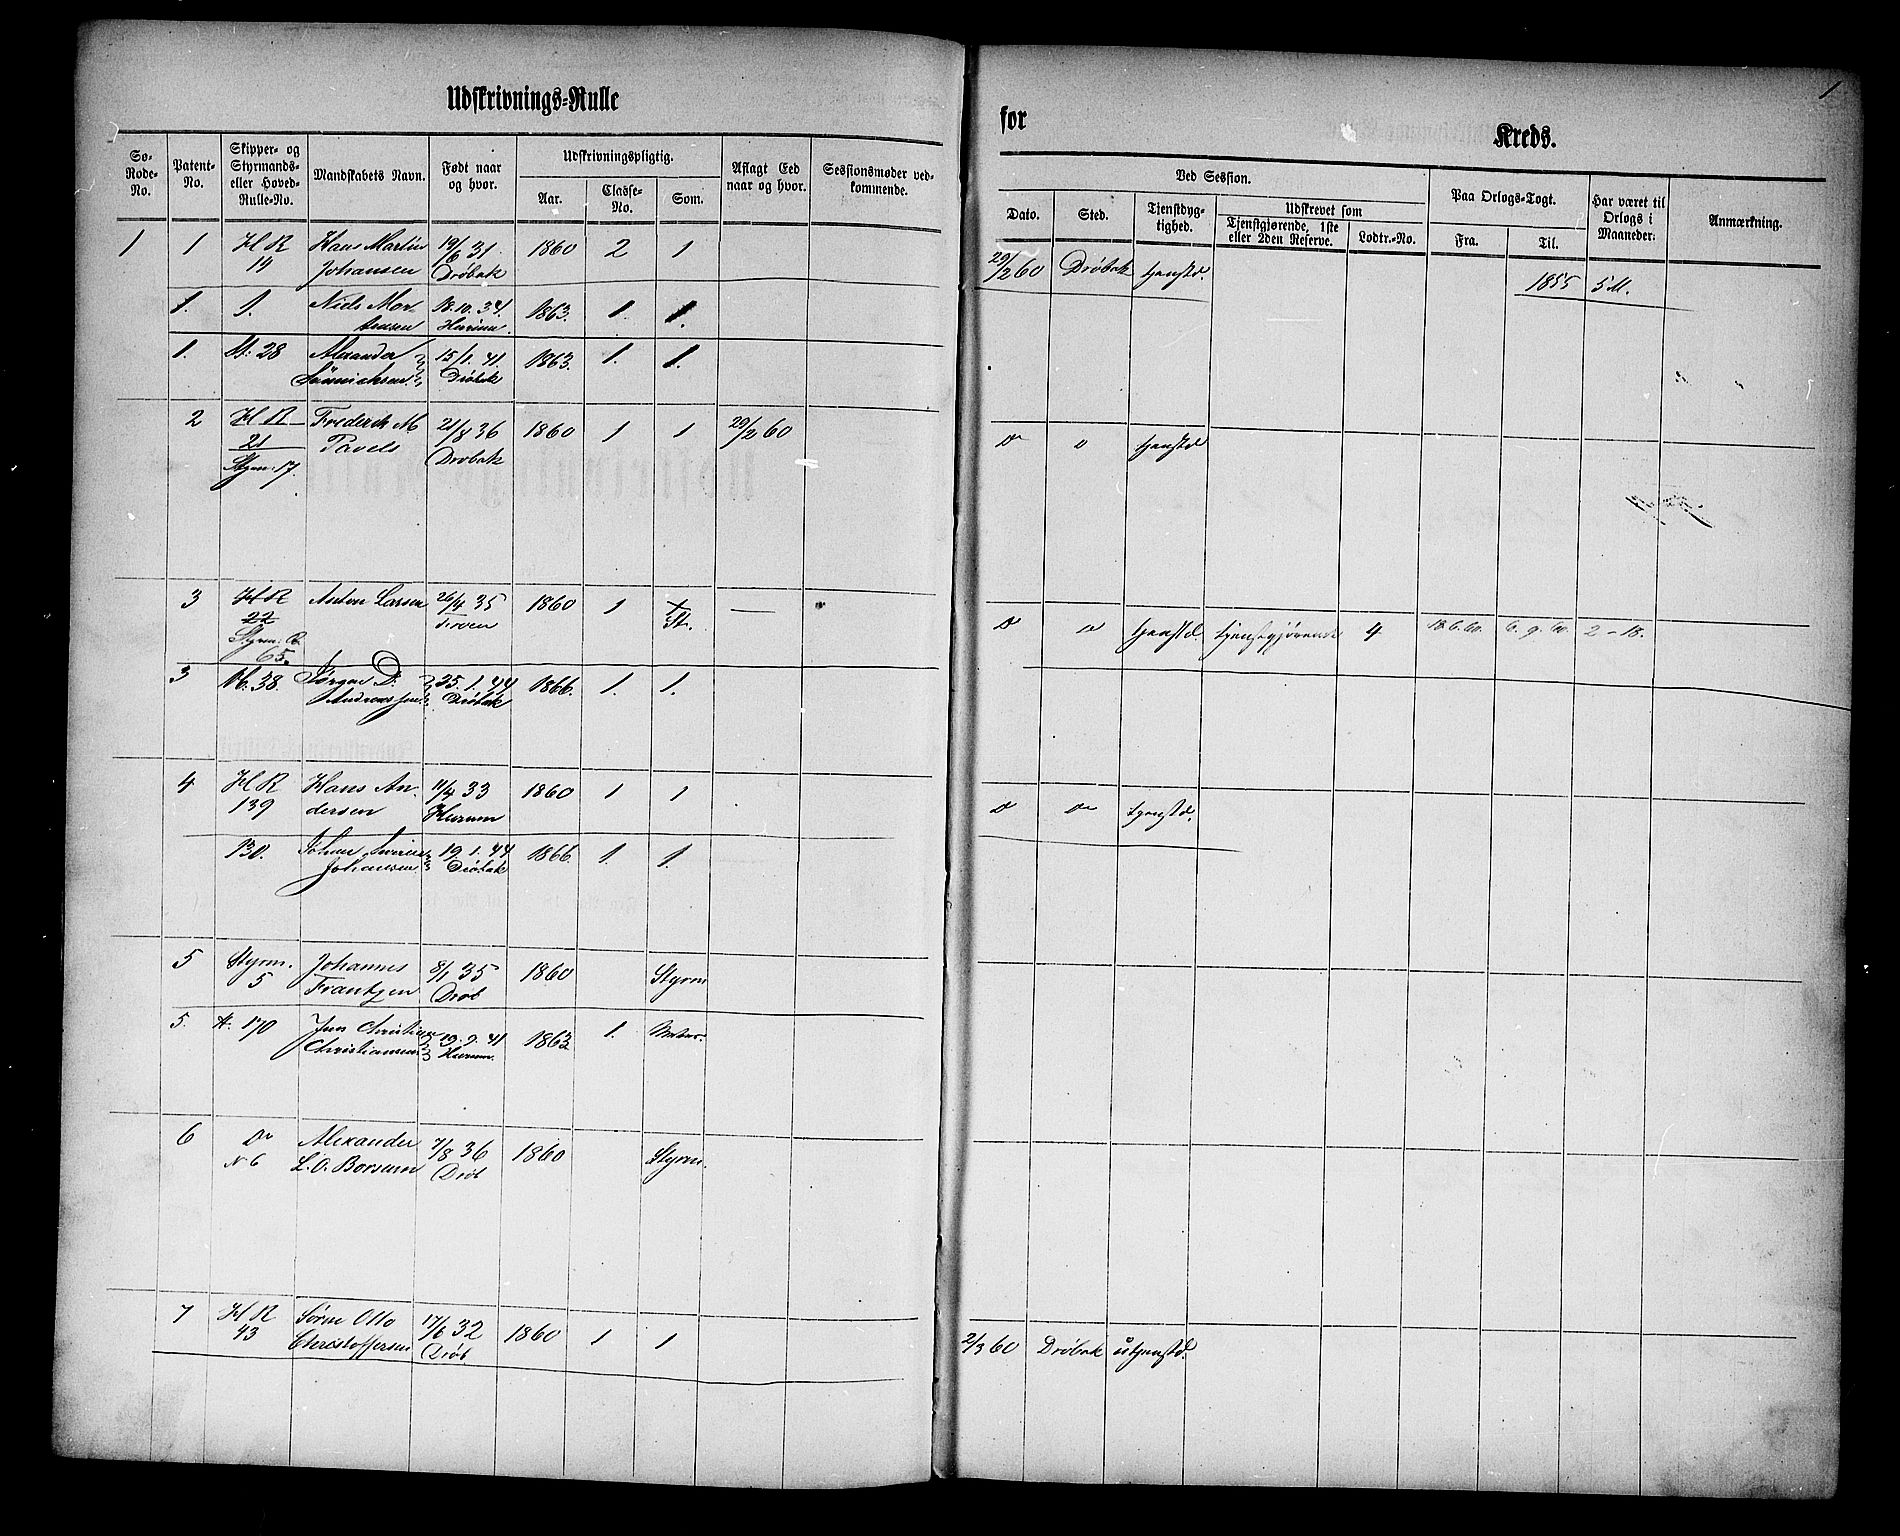 1
Udskrivnings-Rulle
for
Kreds.
So-Rode-No.
Patent-No.
Skipper- og Styrmands- eller Hoved-Rulle-No.
Mandskabets Navn.
Født naar og hvor.
Udskrivningspligtig.
Aar.
Classe-No.
Som.
Aflagt Eed naar og hvor.
Sessionsmøder vedkommende.
Ved Session.
Dato.
Sted.
Tjenstdygtighed.
Udskrevet som
Tjenstgjørende, 1ste eller 2den Reserve.
Lodtr.-No.
Paa Orlogs-Togt.
Fra.
Til.
Har været til Orlogs i Maaneder.
Anmærkning.
1 1 H R 19 Hans Martin Johansen 19/6 31 Drøbak 1860 2 1 29/2 60 Drøbak tjenstd. 1855 5 M.
1. 1. Niels Mortensen 18.10.34. Hurum 1863. 1. 1.
1. 28 Alexander 15/1. 41. Drøbak 1863. 1. 1.
2 H R 21 Styrm. 17. Frederik M Pavels 21/8 36 Drøbak 1860 1 1 29/2 60 Do Do tjenstd
3 H R 22 Styrm: R. 65. Anton Larsen 26/4 35 1860 1 St. Do Do tjenstd. tjenstgjørende 4 18.6.60. 6.9.60. 2-18.
3 38. Jørgen D. Andreassen 25.1.44. Drøbak 1866. 1. 1.
4 H R 139 Hans Andersen 11/4 33 Hurum 1860 1 1 Do Do tjenstd.
130. Johan Johansen 19.1.44 Drøbak 1866. 1. 1.
5 Styrm. 5 Johannes Frantzen 8/1 35 Drøb 1860 Styrm
5. 170 Jens Christian Christiansen 19.9.41 Hurum. 1863 1.
6 Do N 6 Alexander L. O. Borsum 7/8 36 Drøb 1860 Styrm.
7 H R 43 Søren Otto Christoffersen 17/6 32 Drøb 1860 1 1 2/3 60 Drøbak utjenstd.